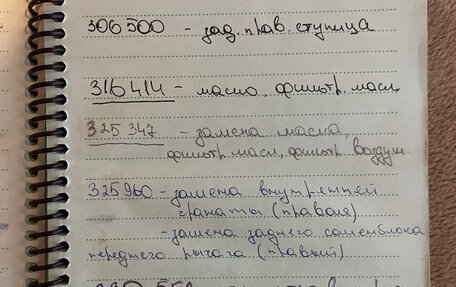 306500 - зад. прав. ступица
316414 - масло, фильтр. масл
325347 - замена масла,
фильтр масл, фильтр воздуш
325960 - замена внутренней
гранаты (правая)
- замена заднего саленблока
переднего рычага (правый)